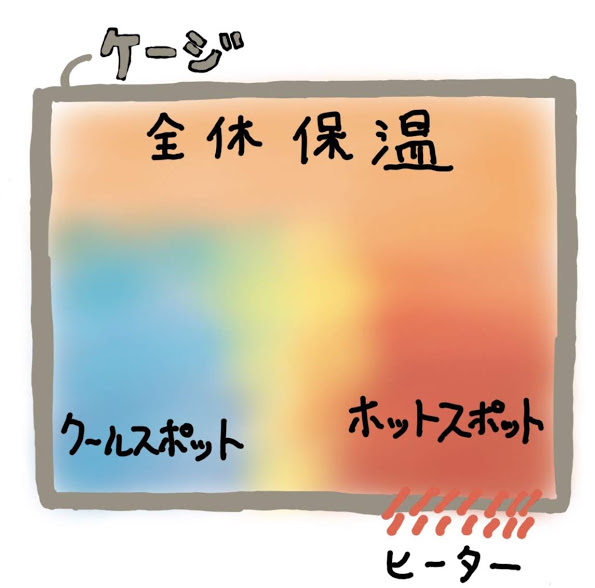 ケージ
全休保温
クールスポット
ホットスポット
ヒーター